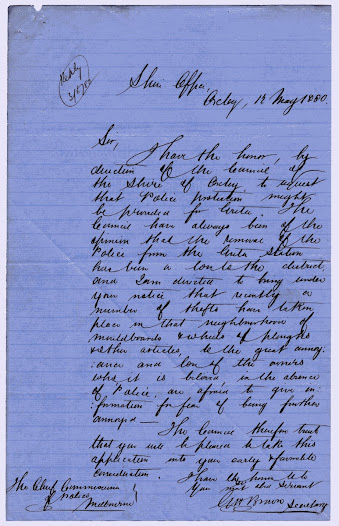 Reply
3/6/80
Shire Office
Oxley, 12 May 1880.
Sir,
I have the honor, by
direction of the Council of
the Shire of Oxley to request
that Police protection might
be provided for Greta. The
Council have always been of the
opinion that the removal of the
Police from the Greta Station
has been a loss to the district,
and I am directed to bring under
your notice that recently a
number of thefts have taken
place in that neighbourhood of
mouldboards & wheels of ploughs
& other articles, to the great annoy-
:ance and loss of the owners
who it is believed in the absence
of Police, are afraid to give in-
:formation for fear of being further
annoyed —
The Council therefore trust
that you will be pleased to take this
application into your early & favorable
consideration. I have the honor to be
The Chief Commissioner
of Police
Melbourne
Your most obt Servant
Secretary